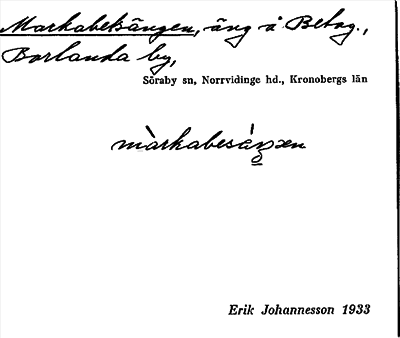 Markabetsängen, äng å Betag.,
Borlanda by,
Söraby sn, Norrvidinge hd., Kronobergs län
màrkabesáŋən
Erik Johannesson 1933